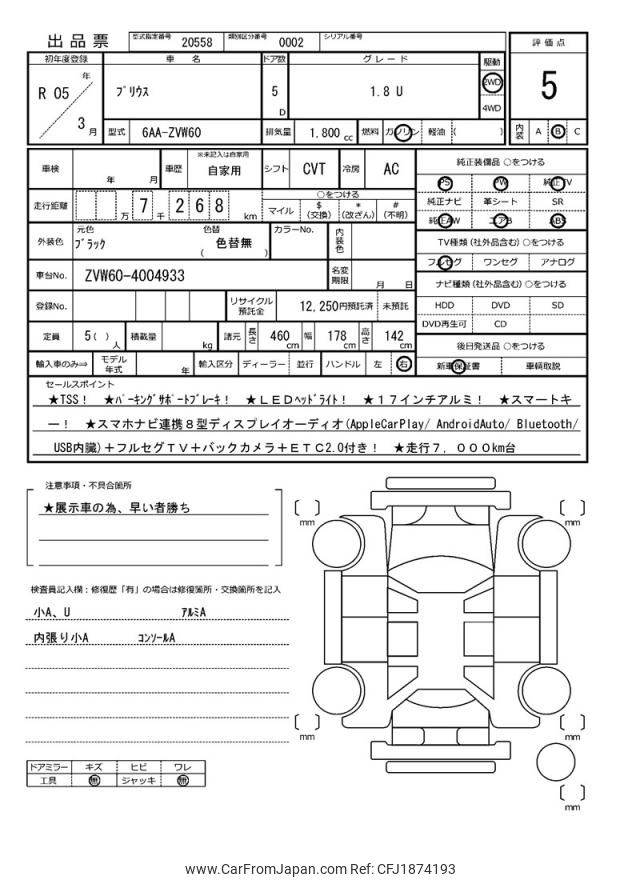 出品票 型式指定番号 20558 類別区分番号 0002 シリアル番号
評価点
初年度登録 車名 ドア数 グレード 駆動
R 05 年 3 月
プリウス 5 D 1.8 U 2WD 4WD
5
型式 6AA-ZVW60 排気量 1.800 cc 燃料 ガソリン 軽油 ( ) 内装 A B C
車検 年 月 車歴 ※未記入は自家用 自家用 シフト CVT 冷房 AC
走行距離 万 7 千 2 6 8 km ○をつける
マイル $(交換) *(改ざん) #(不明)
外装色 元色 ブラック 色替 色替無 ( ) カラーNo. 内装色
車台No. ZVW60-4004933 名変期限 月 日
登録No. リサイクル預託金 12,250円預託済 未預託
定員 5( )人 積載量 kg 諸元 長さ 460cm 幅 178cm 高さ 142cm
輸入車のみ⇒ モデル年式 年 輸入区分 ディーラー 並行 ハンドル 左 右
純正装備品 ○をつける
PS PW 純正TV
純正ナビ 革シート SR
純正AW エアB ABS
TV種類 (社外品含む) ○をつける
フルセグ ワンセグ アナログ
ナビ種類 (社外品含む) ○をつける
HDD DVD SD
DVD再生可 CD
後日発送品 ○をつける
新車保証書 車輌取説
セールスポイント
★TSS! ★パーキングサポートブレーキ! ★LEDヘッドライト! ★17インチアルミ! ★スマートキ
ー! ★スマホナビ連携8型ディスプレイオーディオ(AppleCarPlay/ AndroidAuto/ Bluetooth/
USB内臓)+フルセグTV+バックカメラ+ETC2.0付き! ★走行7,000km台
注意事項・不具合箇所
★展示車の為、早い者勝ち
検査員記入欄:修復歴「有」の場合は修復箇所・交換箇所を記入
小A、U アルミA
内張り小A コンソールA
ドアミラー キズ ヒビ ワレ
工具 無 ジャッキ 無
[ ] mm
[ ] mm
[ ] mm
[ ] mm
[ ] mm
www.CarFromJapan.com Ref: CFJ1874193